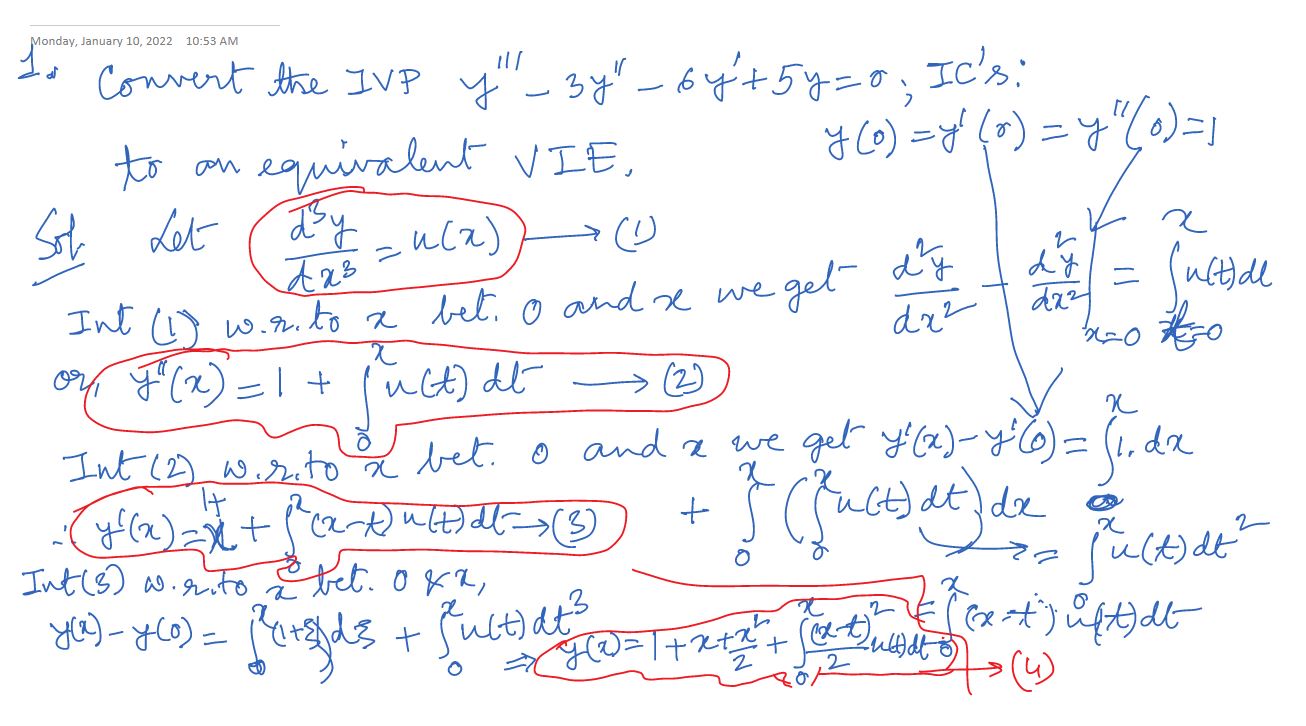 Monday, January 10, 2022 10:53 AM
1. Convert the IVP y''' - 3y'' - 6y' + 5y = 0; IC's:
y(0) = y'(0) = y''(0) = 1
to an equivalent VIE.
Sol. Let d³y/dx³ = u(x) → (1)
Int (1) w.r.to x bet. 0 and x we get d²y/dx² - d²y/dx²|x=0 = ∫_{t=0}^{x} u(t)dt
or, y''(x) = 1 + ∫_0^x u(t) dt → (2)
Int (2) w.r.to x bet. 0 and x we get y'(x) - y'(0) = ∫_0^x 1. dx
+ ∫_0^x (∫_0^x u(t) dt) dx
= ∫_0^x u(t) dt²
= ∫_0^x (x-t) u(t) dt
∴ y'(x) = 1 + x + ∫_0^x (x-t) u(t) dt → (3)
Int (3) w.r.to x bet. 0 & x,
y(x) - y(0) = ∫_0^x (1+ξ) dξ + ∫_0^x u(t) dt³
⇒ y(x) = 1 + x + x²/2 + ∫_0^x (x-t)²/2 u(t) dt → (4)